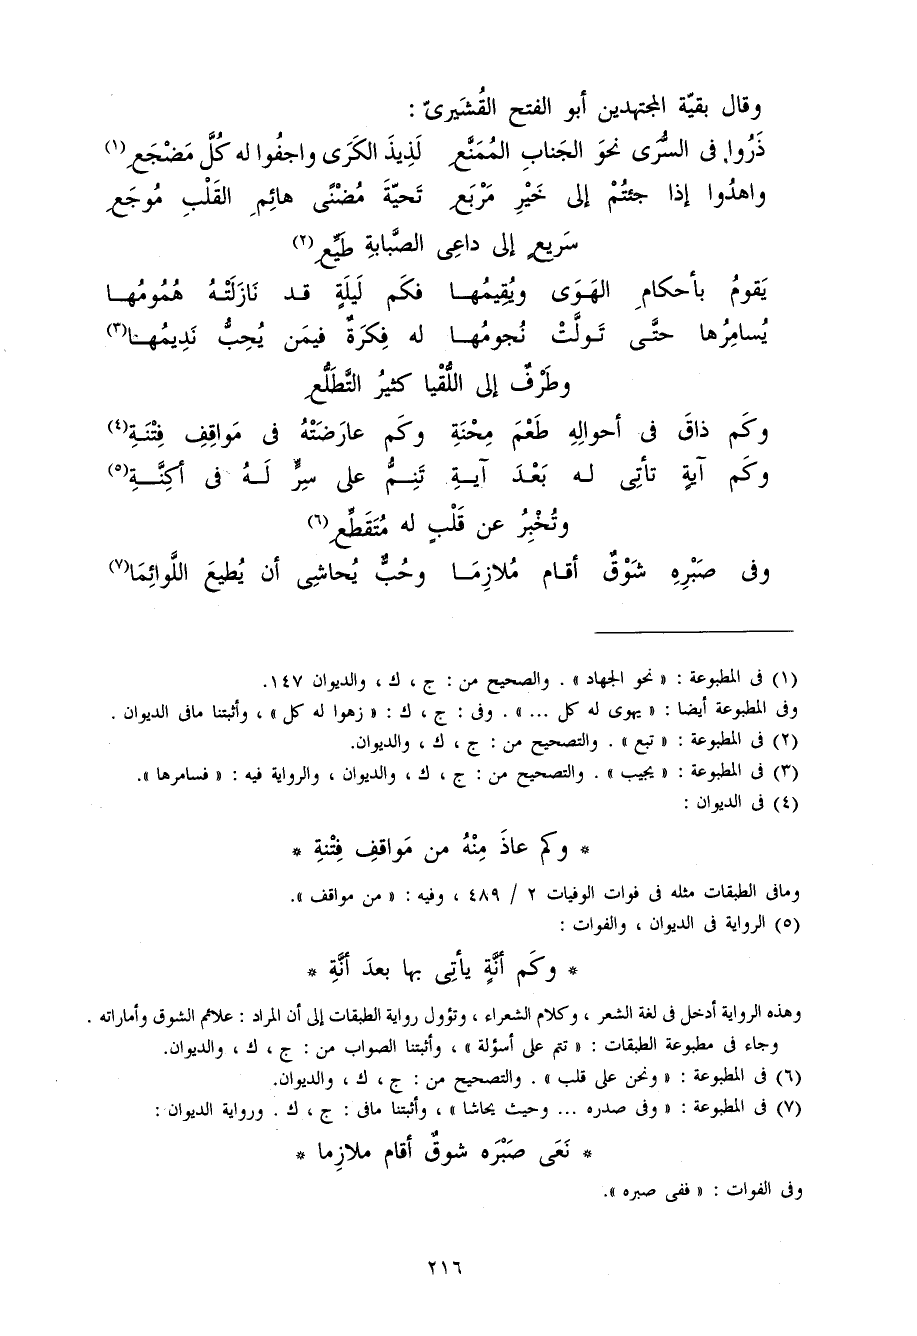 وقال بقيّة المجتهدين أبو الفتح القُشَيرىّ :
ذَرُوا فى السُّرى نحوَ الجَنابِ المُمَنَّعِ لَذِيذَ الكَرَى واجفُوا له كُلَّ مَضْجَعِ (١)
واهدُوا إذا جئتُمْ إلى خَيْرِ مَرْبَعِ تَحيّةَ مُضْنًى هائِمِ القَلْبِ مُوجَعِ
سَريعٍ إلى داعِى الصَّبابةِ طَيِّعِ (٢)
يَقومُ بأحكامِ الهَوَى ويُقِيمُها فكَم لَيلَةٍ قد نَازَلَتْهُ هُمُومُها
يُسامِرُها حتَّى تَولَّتْ نُجومُها له فِكرَةٌ فيمَن يُحِبُّ نَدِيمُها (٣)
وطَرْفٌ إلى اللُّقْيا كثيرُ التَّطَلُّعِ
وكَم ذاقَ فى أحوالِهِ طَعْمَ مِحْنَةِ وكَم عارَضَتْهُ فى مَواقِفِ فِتْنَةِ (٤)
وكَم آيةٍ تأتِى له بَعْدَ آيةِ تَنِمُّ على سِرٍّ لَهُ فى أكِنَّةِ (٥)
وتُخْبِرُ عن قَلْبٍ له مُتَقَطِّعِ (٦)
وفى صَبْرِهِ شَوْقٌ أقام مُلازِمَا وحُبٌّ يُحاشِى أن يُطيعَ اللَّوائِمَا (٧)
(١) فى المطبوعة : « نحو الجهاد » . والصحيح من : ج ، ك ، والديوان ١٤٧.
وفى المطبوعة أيضا : « يهوى له كل ... » . وفى : ج ، ك : « زهوا له كل » ، وأثبتنا مافى الديوان .
(٢) فى المطبوعة : « تبع » . والتصحيح من : ج ، ك ، والديوان.
(٣) فى المطبوعة : « يجيب » . والتصحيح من : ج ، ك ، والديوان ، والرواية فيه : « فسامرها ».
(٤) فى الديوان :
* وكم عاذَ مِنْهُ من مَواقفِ فِتْنةِ *
ومافى الطبقات مثله فى فوات الوفيات ٢ / ٤٨٩ ، وفيه : « من مواقف ».
(٥) الرواية فى الديوان ، والفوات :
* وكَم أنَّةٍ يأتِى بها بعدَ أنَّةِ *
وهذه الرواية أدخل فى لغة الشعر ، وكلام الشعراء ، وتؤول رواية الطبقات إلى أن المراد : علائم الشوق وأماراته .
وجاء فى مطبوعة الطبقات : « تتم على أسؤلة » ، وأثبتنا الصواب من : ج ، ك ، والديوان.
(٦) فى المطبوعة : « ونحن على قلب » . والتصحيح من : ج ، ك ، والديوان.
(٧) فى المطبوعة : « وفى صدره ... وحيث يحاشا » ، وأثبتنا مافى : ج ، ك . ورواية الديوان :
* نَعَى صَبْرَه شوقٌ أقام ملازِما *
وفى الفوات : « ففى صبره ».
٢١٦